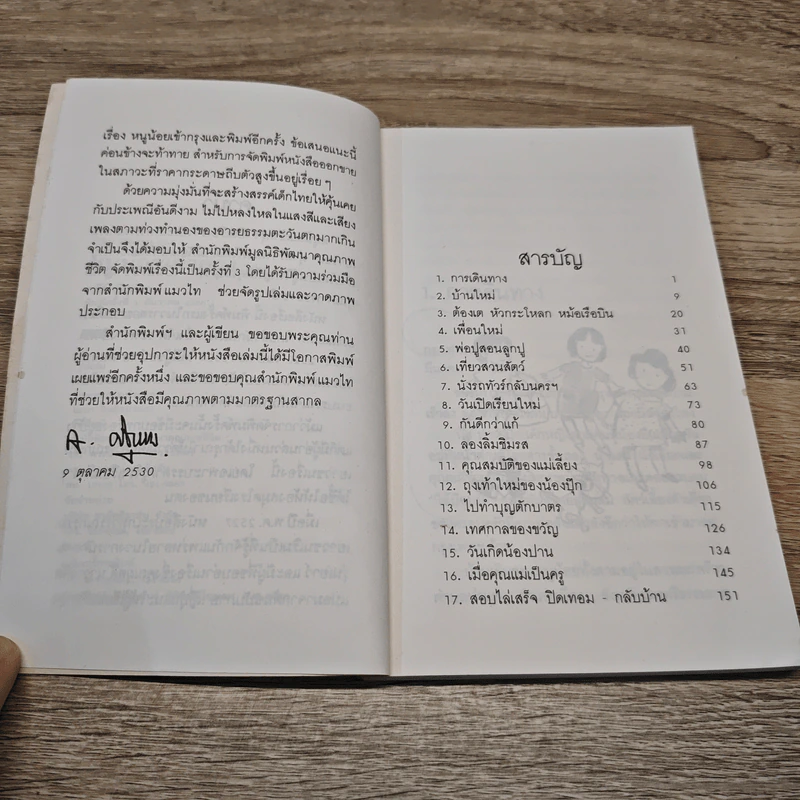 เรื่อง หนูน้อยเข้ากรุงและพิมพ์อีกครั้ง ข้อเสนอแนะนี้
ค่อนข้างจะท้าทาย สำหรับการจัดพิมพ์หนังสือออกขาย
ในสภาวะที่ราคากระดาษถีบตัวสูงขึ้นอยู่เรื่อย ๆ
ด้วยความมุ่งมั่นที่จะสร้างสรรค์เด็กไทยให้คุ้นเคย
กับประเพณีอันดีงาม ไม่ไปหลงใหลในแสงสีและเสียง
เพลงตามท่วงทำนองของอารยธรรมตะวันตกมากเกิน
จำเป็นจึงได้มอบให้ สำนักพิมพ์มูลนิธิพัฒนาคุณภาพ
ชีวิต จัดพิมพ์เรื่องนี้เป็นครั้งที่ 3 โดยได้รับความร่วมมือ
จากสำนักพิมพ์ แมวไท ช่วยจัดรูปเล่มและวาดภาพ
ประกอบ
สำนักพิมพ์ฯ และผู้เขียน ขอขอบพระคุณท่าน
ผู้อ่านที่ช่วยอุปการะให้หนังสือเล่มนี้ได้มีโอกาสพิมพ์
เผยแพร่อีกครั้งหนึ่ง และขอขอบคุณสำนักพิมพ์ แมวไท
ที่ช่วยให้หนังสือมีคุณภาพตามมาตรฐานสากล
9 ตุลาคม 2530
สารบัญ
1. การเดินทาง 1
2. บ้านใหม่ 9
3. ต้องเต หัวกระโหลก หม้อเรือบิน 20
4. เพื่อนใหม่ 31
5. พ่อปูสอนลูกปู 40
6. เที่ยวสวนสัตว์ 51
7. นั่งรถทัวร์กลับนครฯ 63
8. วันเปิดเรียนใหม่ 73
9. กันดีกว่าแก้ 80
10. ลองลิ้มชิมรส 87
11. คุณสมบัติของแม่เลี้ยง 98
12. ถุงเท้าใหม่ของน้องปุ๊ก 106
13. ไปทำบุญตักบาตร 115
14. เทศกาลของขวัญ 126
15. วันเกิดน้องปาน 134
16. เมื่อคุณแม่เป็นครู 145
17. สอบไล่เสร็จ ปิดเทอม - กลับบ้าน 151